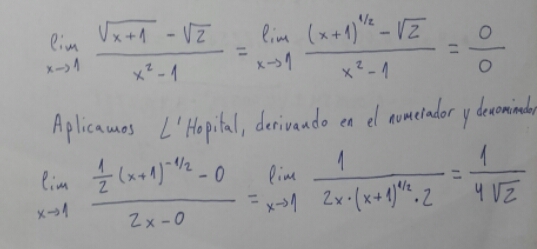 lim x→1 (√(x+1) - √2)/(x² - 1) = lim x→1 ((x+1)^(1/2) - √2)/(x² - 1) = 0/0
Aplicamos L'Hopital, derivando en el numerador y denominador
lim x→1 (1/2 (x+1)^(-1/2) - 0)/(2x - 0) = lim x→1 1/(2x·(x+1)^(1/2)·2) = 1/(4√2)